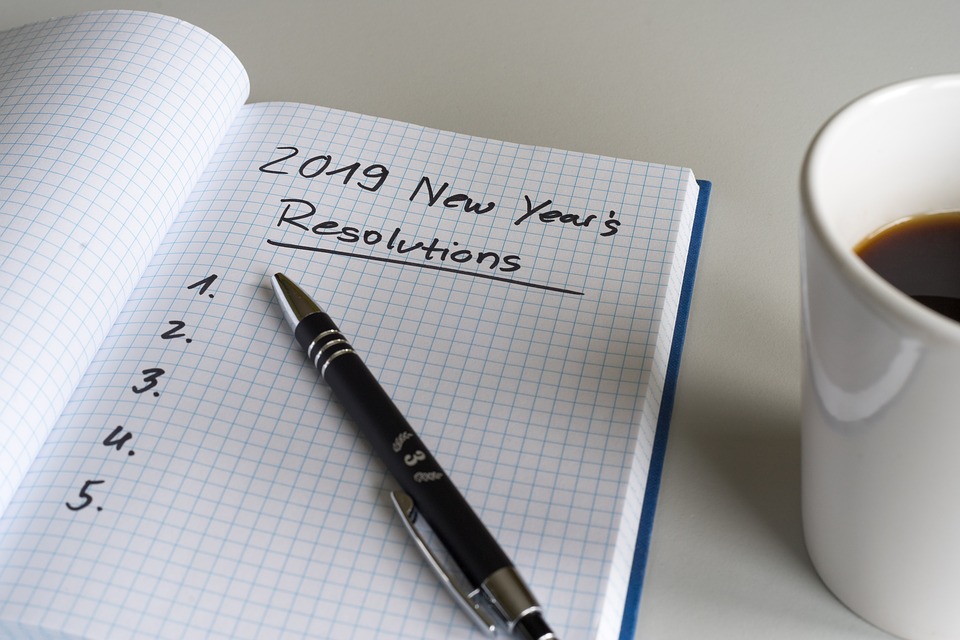 2019 New Year's
Resolutions
1.
2.
3.
4.
5.
3